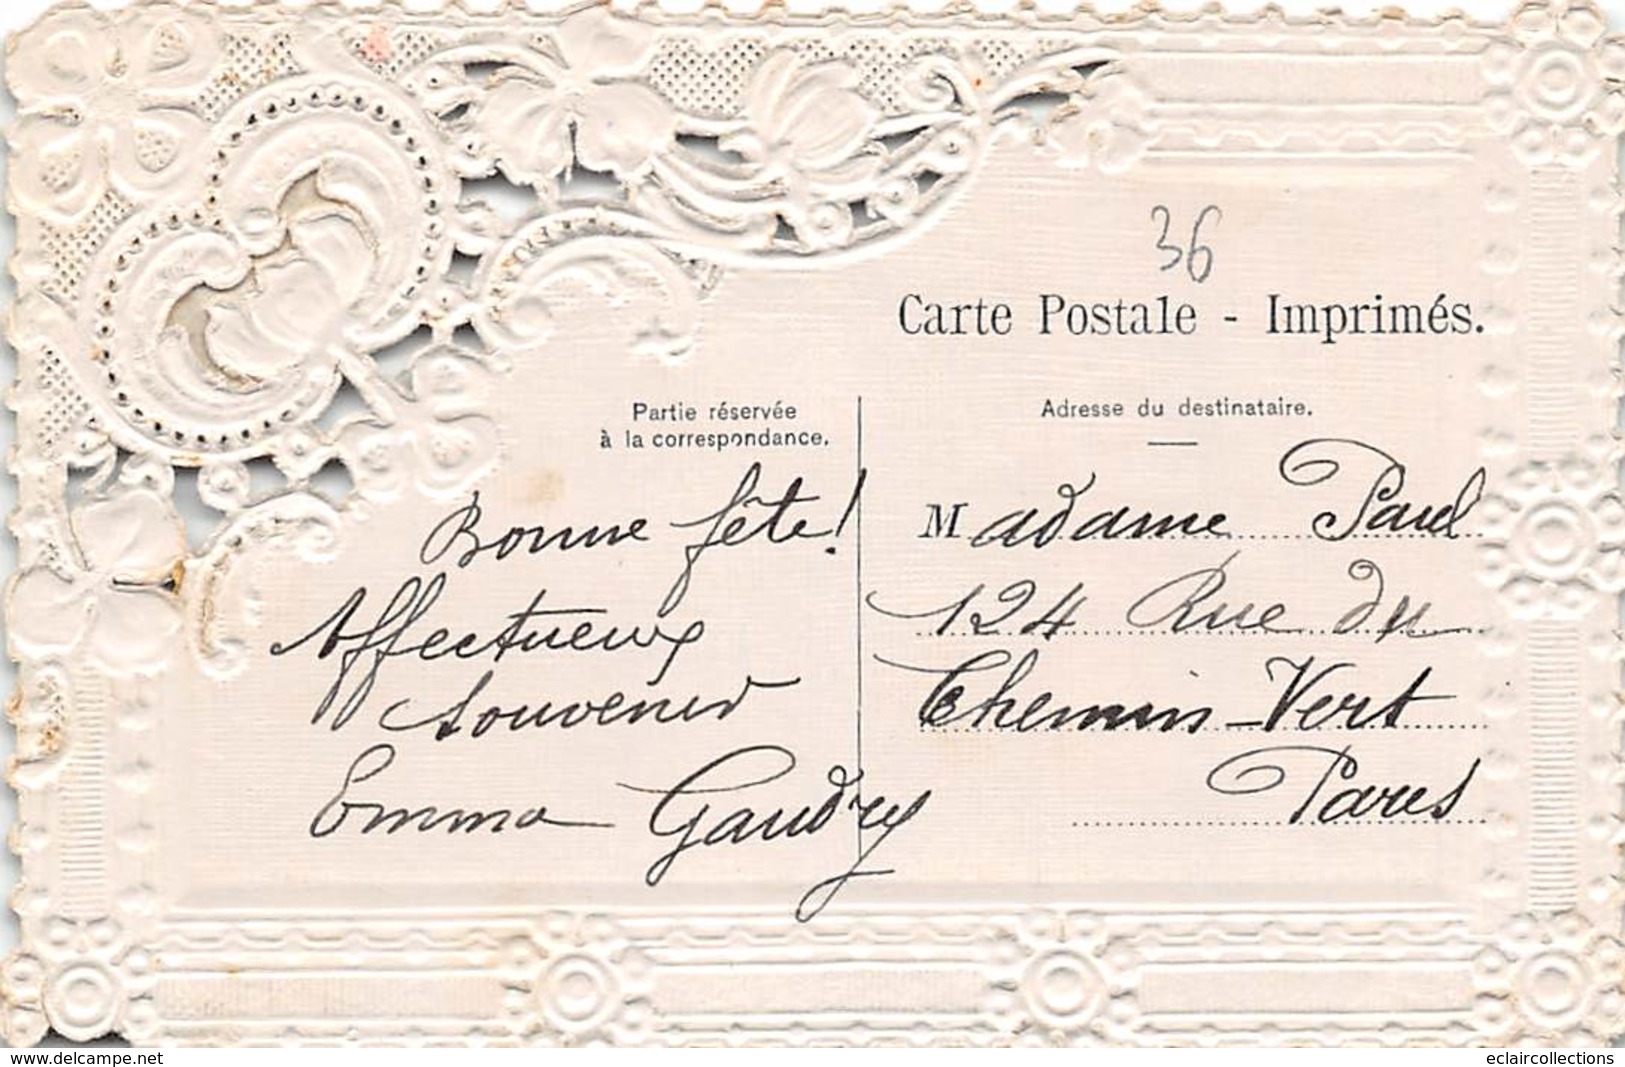 36
Carte Postale - Imprimés.
Partie réservée
à la correspondance.
Bonne fête!
Affectueux
souvenir
Emma Gaudry
Adresse du destinataire.
Madame Paul
124 Rue du
Chemin-Vert
Paris
www.delcampe.net
eclaircollections